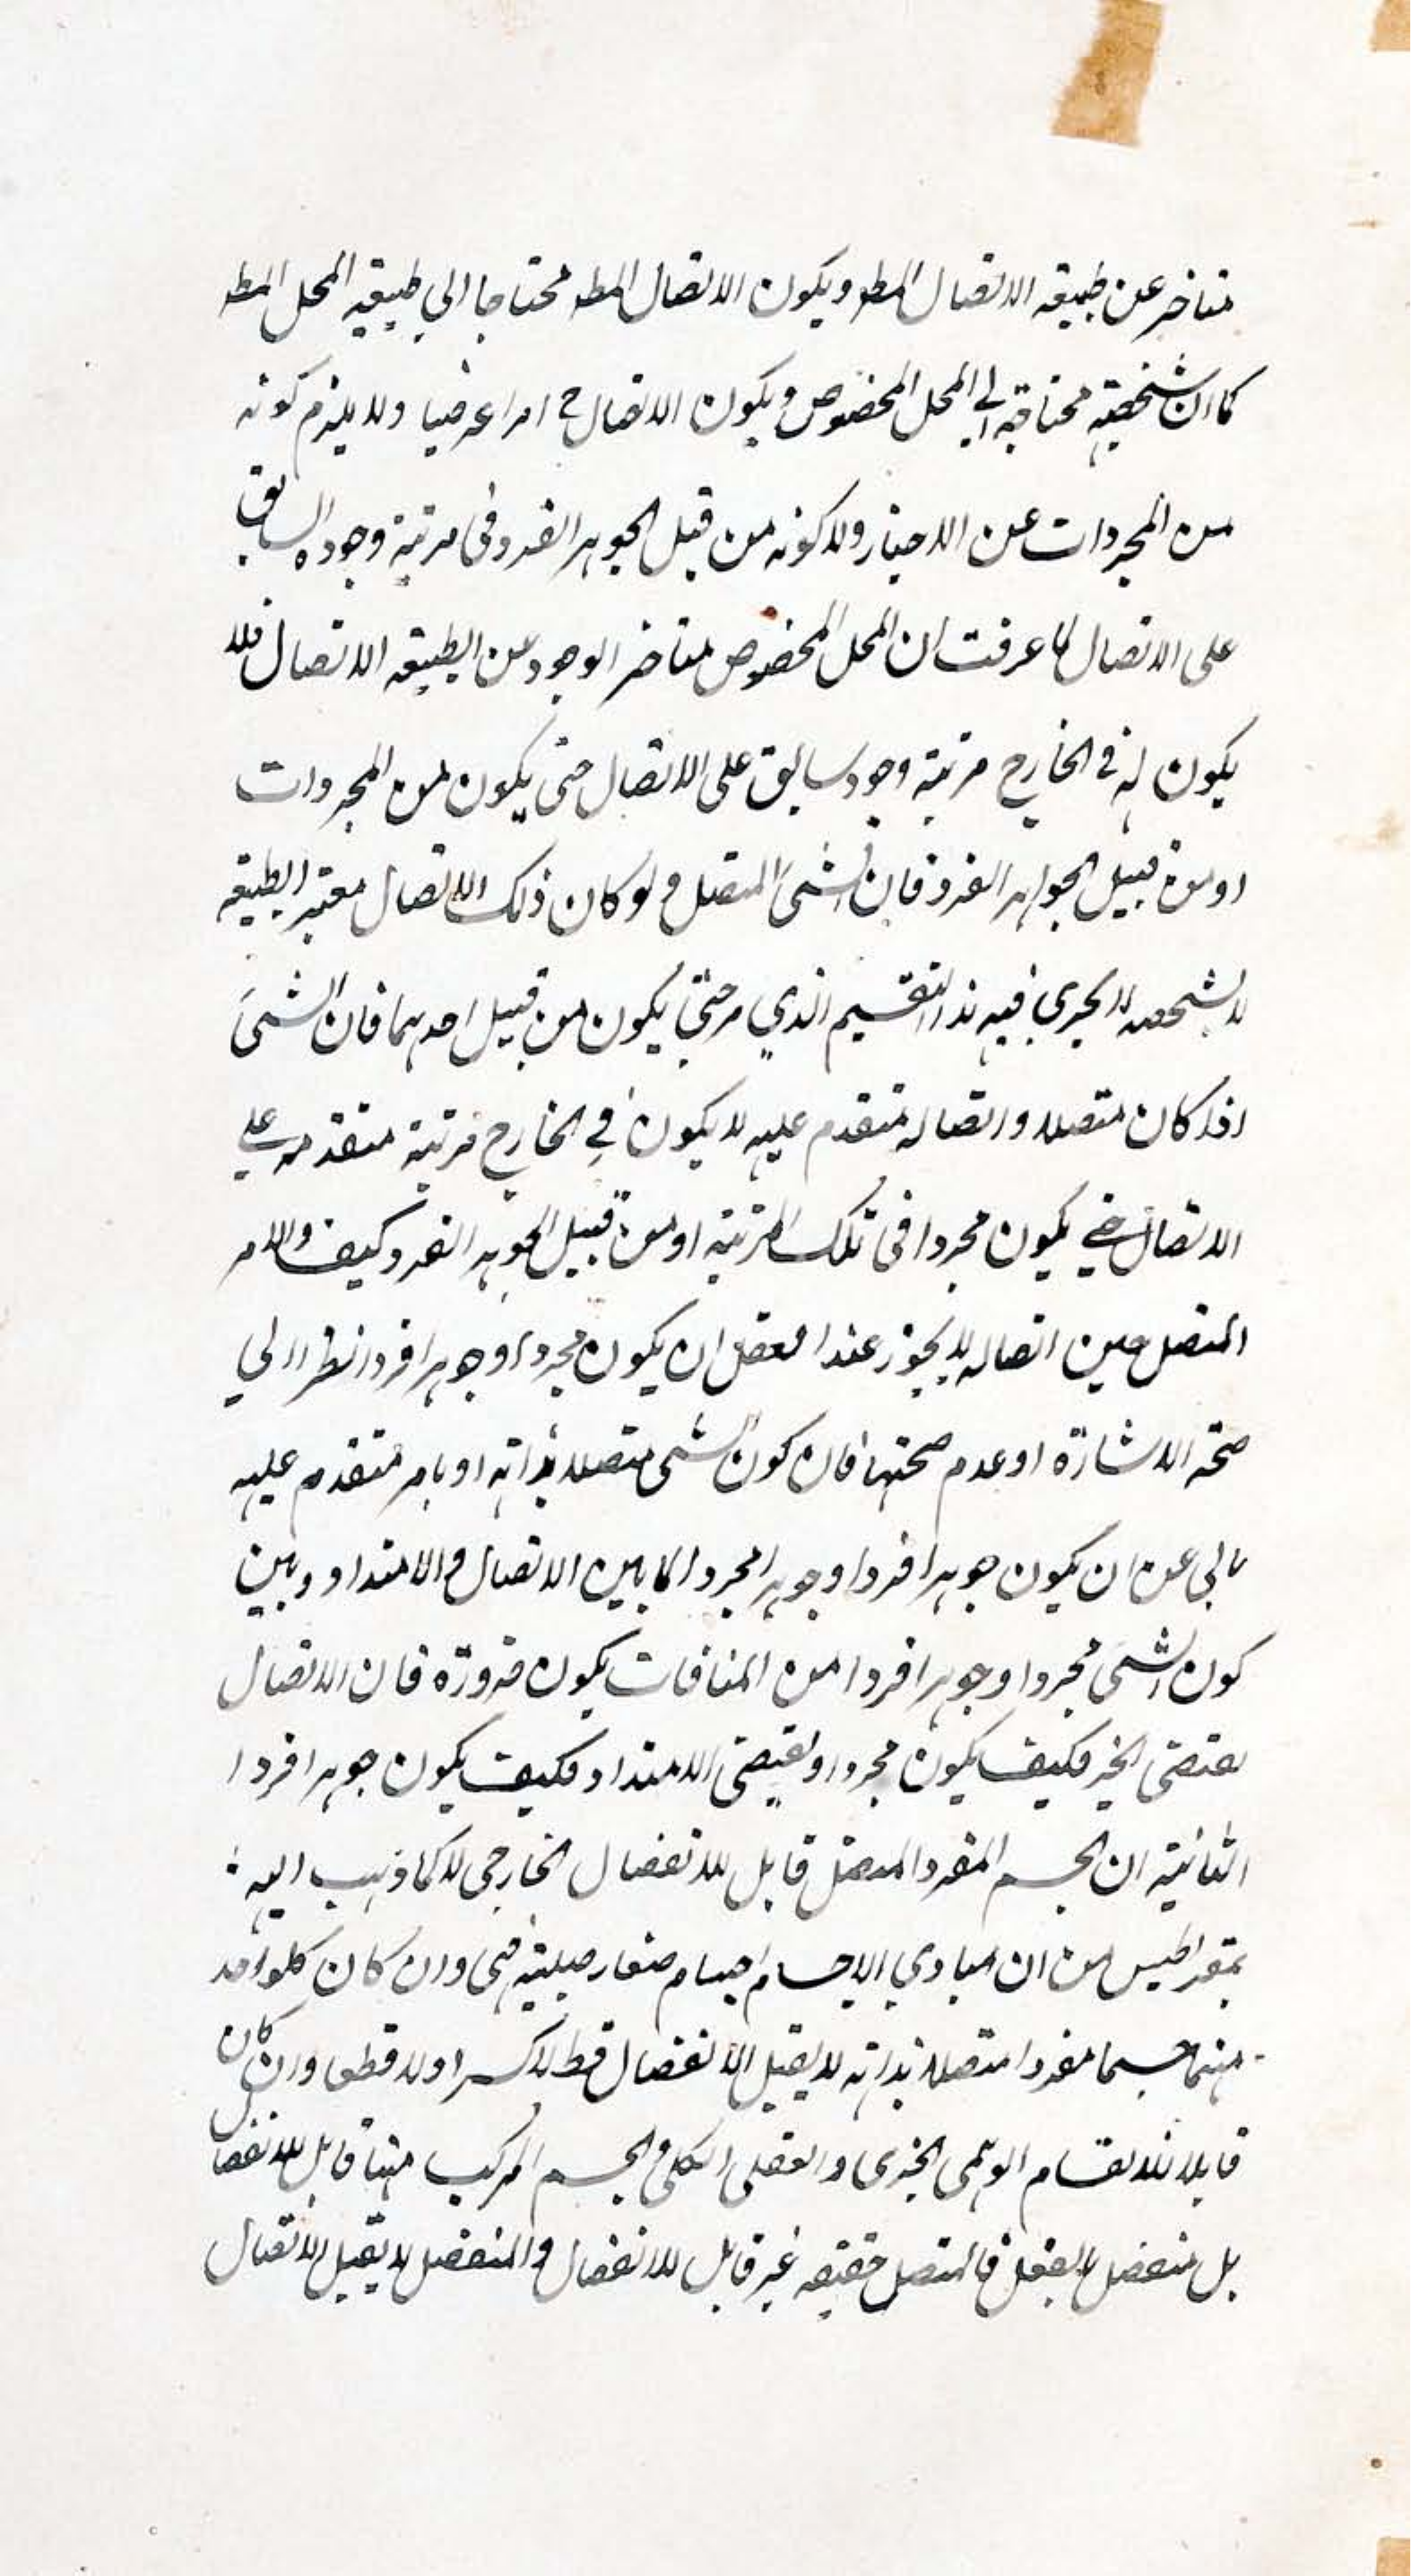 متاخر عن طبيعة الاتصال المط ويكون الاتصال المط محتاجا الي طبيعة المحل المط
كما ان شخصيته محتاجة الي المحل المخصوص ويكون الاتصال ح امرا عرضيا ولا يلزم كونه
من المجردات عن الاحياز ولا كونه من قبل الجوهر الفرد في مرتبة وجوده السابق
على الاتصال لما عرفت ان المحل المخصوص متاخر الوجود عن الطبيعة الاتصال فلا
يكون له في الخارج مرتبة وجود سابق على الاتصال حتى يكون من المجردات
او من قبيل الجواهر الفرد فان الشئ المتصل ولو كان ذلك الاتصال معتبر الطبيعة
لا بشخصه لا يجري فيه هذا التقسيم الذي مر حتى يكون من قبيل احدهما فان الشئ
اذا كان متصلا واتصاله متقدم عليه لا يكون في الخارج مرتبة متقدمة علي
الاتصال حتى يكون مجردا في تلك المرتبة او من قبيل الجوهر الفرد كيف والامر
المتصل حين اتصاله لا يجوز عند العقل ان يكون مجردا او جوهرا فردا نظرا الي
صحة الاشارة او عدم صحتها فان كون الشئ متصلا بذاته او بامر متقدم عليه
يابي عن ان يكون جوهرا فردا او جوهرا مجردا لما بين الاتصال والامتداد وبين
كون الشئ مجردا او جوهرا فردا من المنافات يكون ضرورة فان الاتصال
يقتضى الحيز فكيف يكون مجردا ويقتضى الامتداد فكيف يكون جوهرا فردا
الثانية ان الجسم المفرد المتصل قابل للانفصال الخارجي لا كما ذهب اليه
يمقراطيس من ان مبادي الاجسام اجسام صغار صلبية فهى وان كان كل واحد
منهما جسما مفردا متصلا بذاته لا يقبل الانفصال قط لا كسرا ولا قطعا وان كان
قابلا للانقسام الوهمى الجزى والعقلى الكلى والجسم المركب منها قابل للانفصال
بل منفصل بالفعل فالمتصل حقيقة غير قابل للانفصال والمنفصل لا يقبل الاتصال